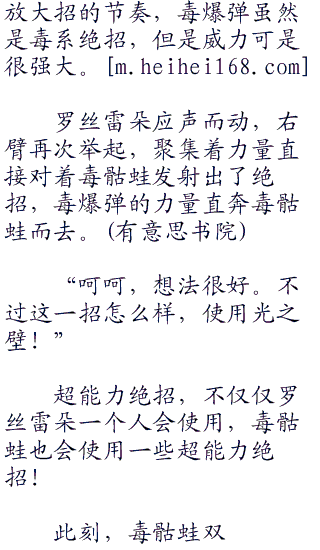 放大招的节奏，毒爆弹虽然
是毒系绝招，但是威力可是
很强大。[m.heihei168.com]
罗丝雷朵应声而动，右
臂再次举起，聚集着力量直
接对着毒骷蛙发射出了绝
招，毒爆弹的力量直奔毒骷
蛙而去。(有意思书院)
“呵呵，想法很好。不
过这一招怎么样，使用光之
壁！”
超能力绝招，不仅仅罗
丝雷朵一个人会使用，毒骷
蛙也会使用一些超能力绝
招！
此刻，毒骷蛙双